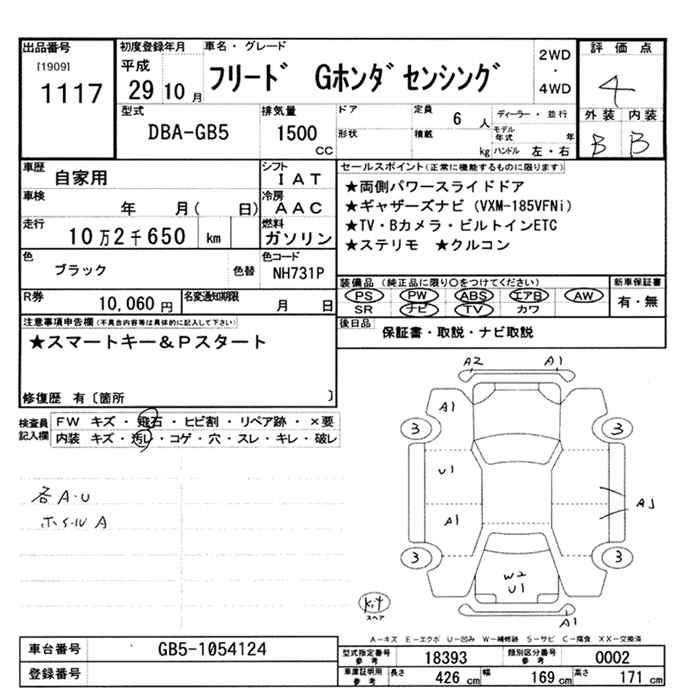 出品番号
[1909]
1117
初度登録年月
平成
29 10 月
車名・グレード
フリード Gホンダセンシング
2WD
・
4WD
評価点
4
外装 内装
B B
型式
DBA-GB5
排気量
1500
CC
ドア
形状
定員 6 人
積載 kg
ディーラー・並行
モデル年式 年
ハンドル 左・右
車歴
自家用
シフト
IAT
車検
年 月( 日)
冷房
AAC
走行
10万2千650 km
燃料
ガソリン
色
ブラック
色替
色コード
NH731P
R券
10,060 円
名変通知期限
月 日
セールスポイント(正常に機能するものに限ります)
★両側パワースライドドア
★ギャザーズナビ(VXM-185VFNi)
★TV・Bカメラ・ビルトインETC
★ステリモ ★クルコン
装備品(純正品に限り○をつけてください)
PS PW ABS エアB AW
SR ナビ TV カワ
新車保証書
有・無
後日品
保証書・取説・ナビ取説
注意事項申告欄(不具合内容等は具体的に記入して下さい)
★スマートキー&Pスタート
修復歴 有〔箇所 〕
検査員
記入欄
FW キズ・飛石・ヒビ割・リペア跡・×要
内装 キズ・汚レ・コゲ・穴・スレ・キレ・破レ
各A・U
ホイールA
A2 A1
A1
3 3
U1
A1
A1
3 3
W2
U1
キット
スペア
A1
A-キズ E-エクボ U-凹み W-補修跡 S-サビ C-腐食 XX-交換済
車台番号
GB5-1054124
登録番号
型式指定番号
参考
18393
類別区分番号
参考
0002
車庫証明用
参考
長さ 426 cm 幅 169 cm 高さ 171 cm